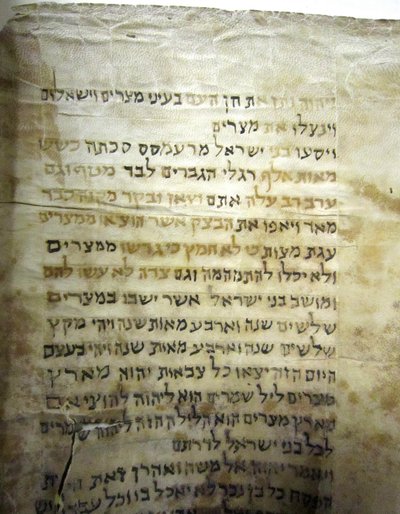 ויהוה נתן את חן העם בעיני מצרים וישאלום
וינצלו את מצרים
ויסעו בני ישראל מרעמסס סכתה כשש
מאות אלף רגלי הגברים לבד מטף וגם
ערב רב עלה אתם וצאן ובקר מקנה כבד
מאד ויאפו את הבצק אשר הוציאו ממצרים
עגת מצות כי לא חמץ כי גרשו ממצרים
ולא יכלו להתמהמה וגם צדה לא עשו להם
ומושב בני ישראל אשר ישבו במצרים
שלשים שנה וארבע מאות שנה ויהי מקץ
שלשים שנה וארבע מאות שנה ויהי בעצם
היום הזה יצאו כל צבאות יהוה מארץ
מצרים ליל שמרים הוא ליהוה להוציאם
מארץ מצרים הוא הלילה הזה ליהוה שמרים
לכל בני ישראל לדרתם
ויאמר יהוה אל משה ואהרן זאת חקת
הפסח כל בן נכר לא יאכל בו וכל עבד